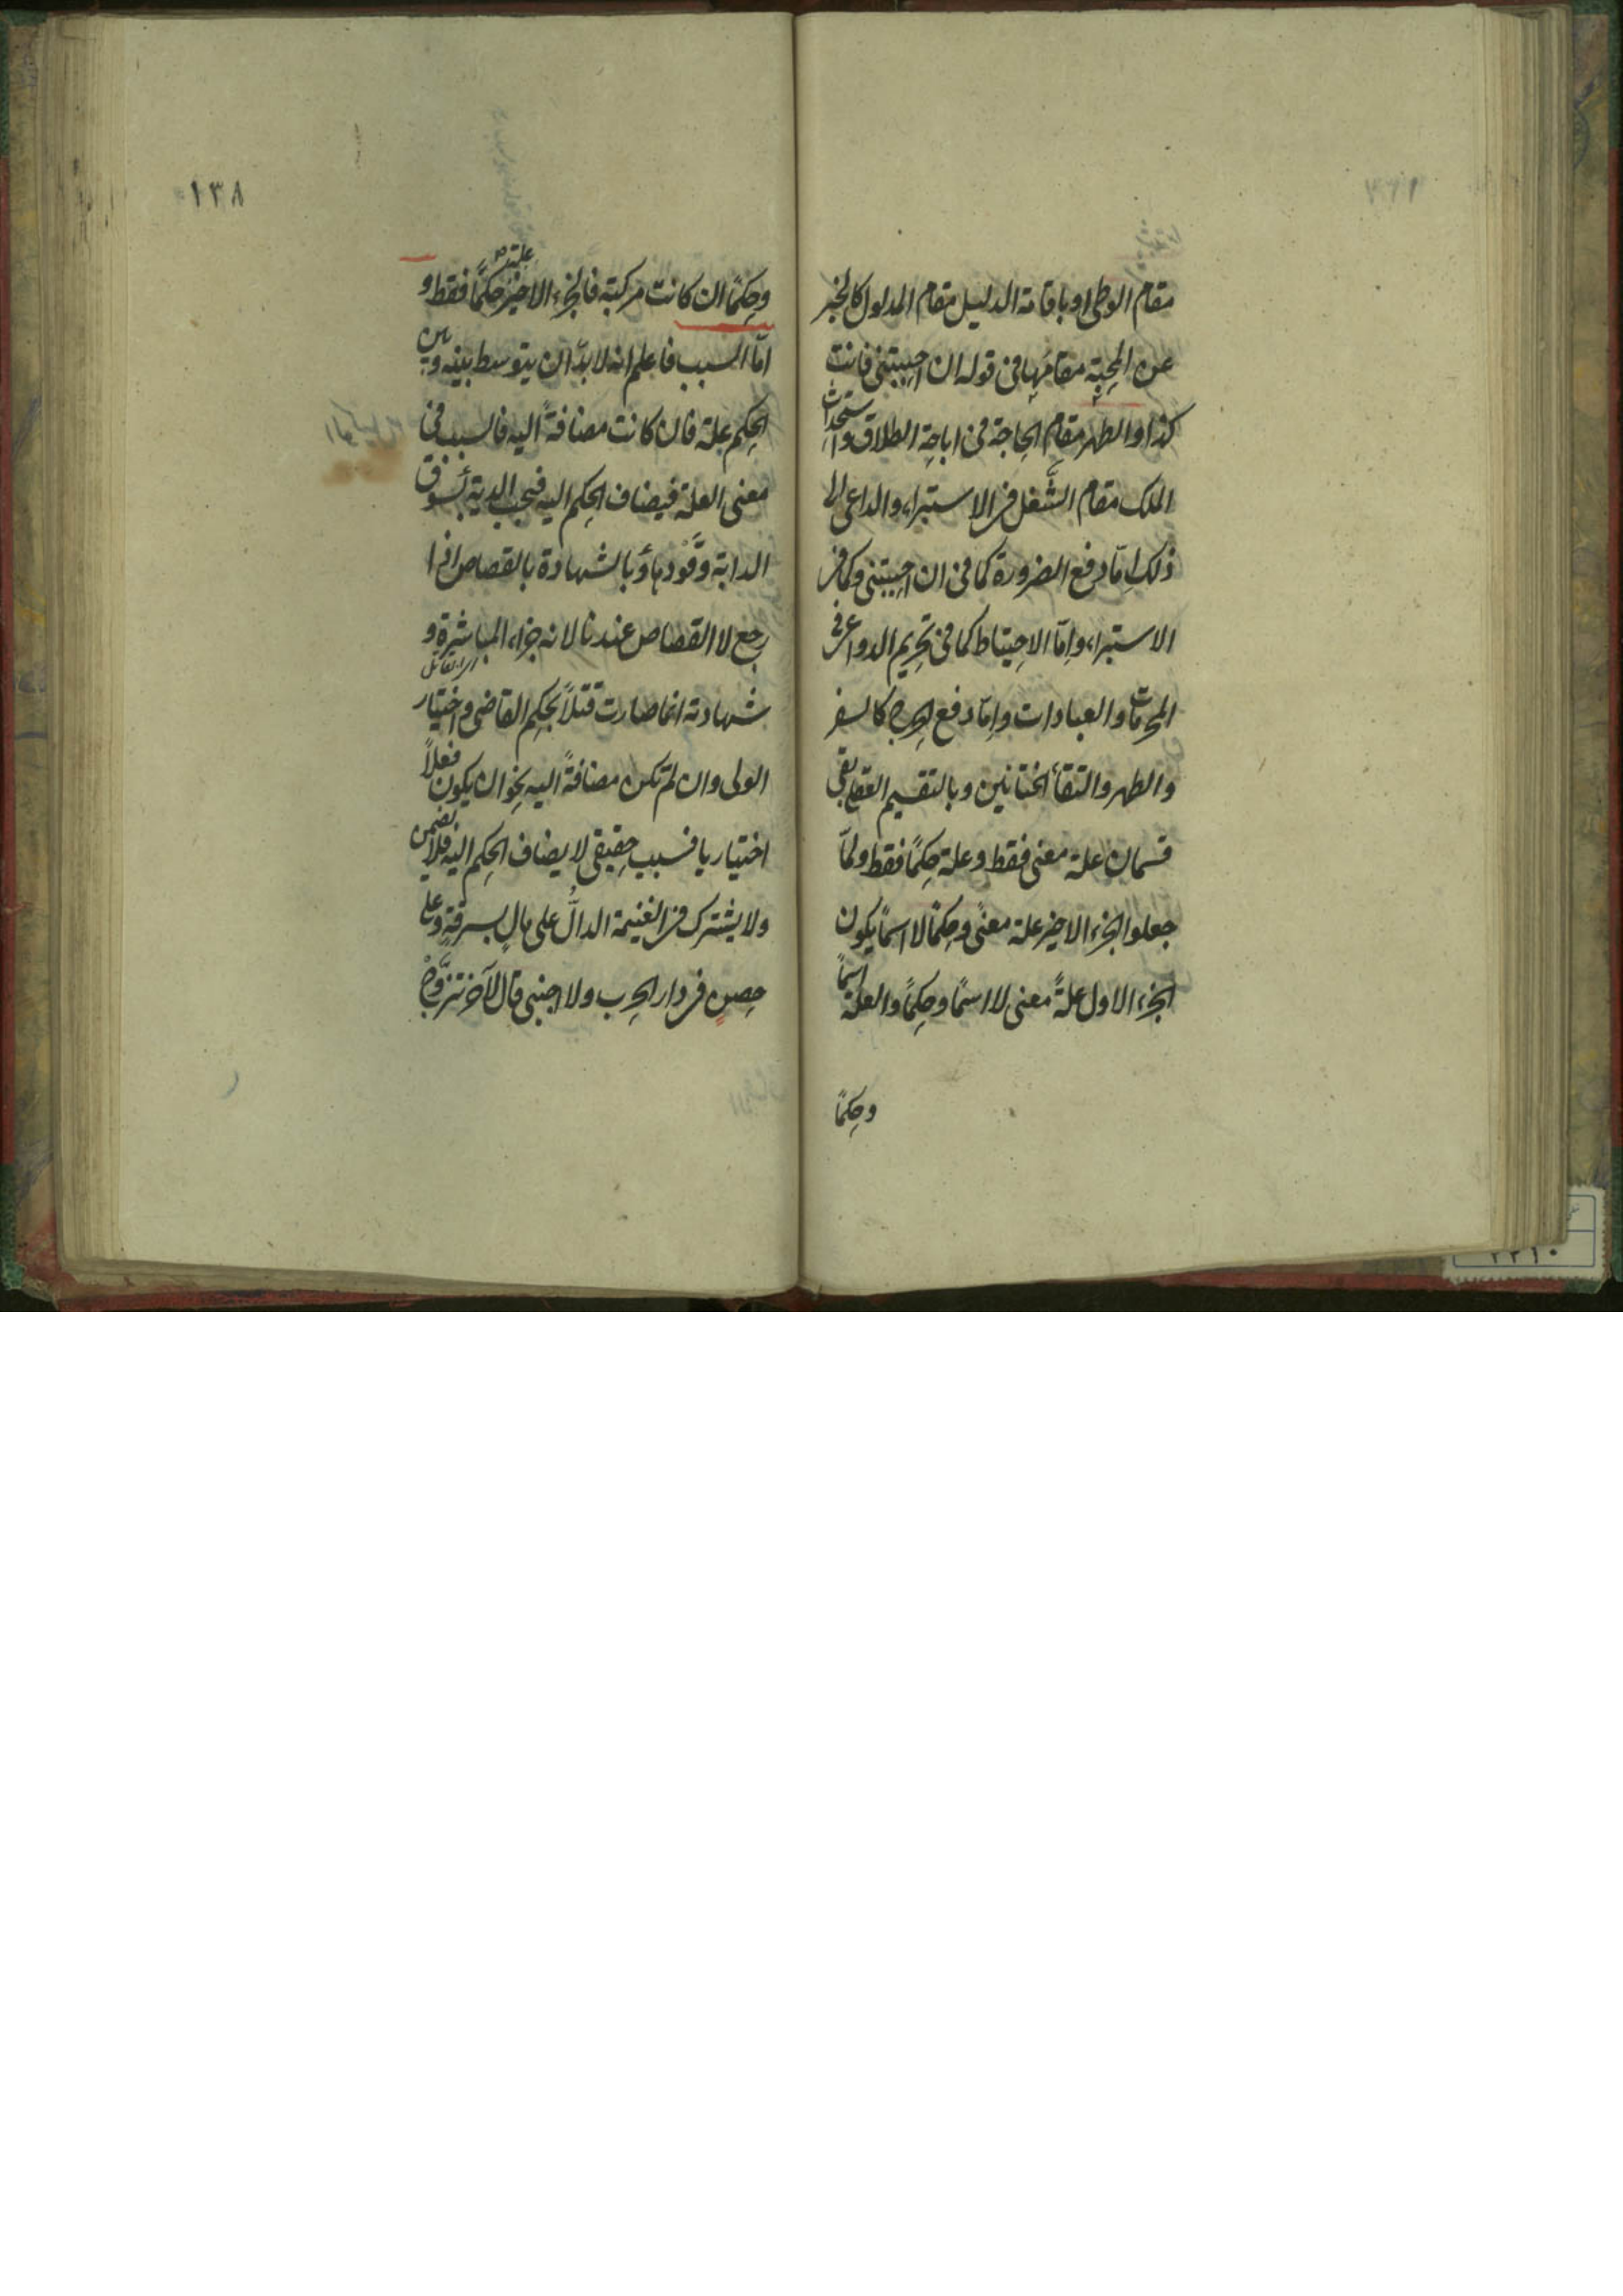 مقام الوطى او باقامة الدليل مقام المدلول كالخبر
عن المحبة مقامَها فى قوله ان احببتنى فانت
كذا و الطهر مقام الحاجة فى اباحة الطلاق و استحداث
الملك مقام الشَّغل فى الاستبراء و الداعى الى
ذلك اِمّا دفع الضرورة كما فى ان احببتنى و كما فى
الاستبراء و اِمّا الاحتياط كما فى تحريم الدواعى فى
المحرمات و العبادات و اِمّا دفع الحرج كالسفر
و الطهر و التقاء الختانين و بالتقسيم العقلى بقى
قسمان علة معنى فقط و علة حكمًا فقط و لمّا
جعلوا الجزء الاخير علة معنًى و حكمًا لا اسمًا يكون
الجزء الاول علةً معنى لا اسمًا و حكمًا و العلة اسمًا
و حكمًا
١٣٨
و حكمًا ان كانت مركبة فالجزء الاخير علة حكمًا فقط و
امّا السبب فاعلم انه لا بدّ ان يتوسط بينه و بين
الحكم علة فان كانت مضافةً اليه فالسبب فى
معنى العلة فيضاف الحكم اليه فيجب الدية بسَوق
الدابة و قَوْدها و بالشهادة بالقصاص اذا
رجع لا القصاص عندنا لانه جزاء المباشرة و
شهادته انما صارت قتلاً بحكم القاضى و اختيار
الولى و ان لم تكن مضافةً اليه نحو ان يكون فعلاً
اختياريا فسبب حقيقى لا يضاف الحكم اليه فلا يضمن
و لا يشترك فى الغنيمة الدالُّ على مالٍ بسرقةٍ و على
حصنٍ فى دار الحرب و لا اجنبى قال لآخر تزوَّجْ